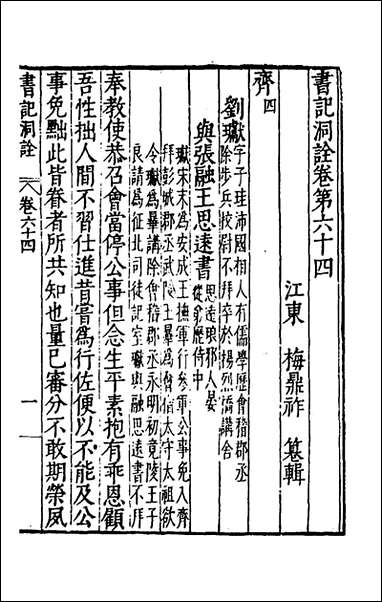 書記洞詮卷第六十四
江東 梅鼎祚 纂輯
齊四
劉瓛
字子珪沛國相人有儒學歷會稽郡丞
除步兵校尉不拜卒於揚烈橋講舍
與張融王思遠書
思遠琅邪人晏
從弟歷侍中
瓛宋末為安成王撫軍行參軍公事免入齊
拜彭城郡丞武陵王曅為會稽太守太祖欲
令瓛為曅講除會稽郡丞永明初竟陵王子
良請為征北司徒記室瓛與融思遠書不拜
奉教使恭召會當停公事但念生平素抱有乖恩顧
吾性拙人間不習仕進昔嘗爲行佐便以不能及公
事免黜此皆眷者所共知也量已審分不敢期榮夙
書記洞詮
卷六十四
一